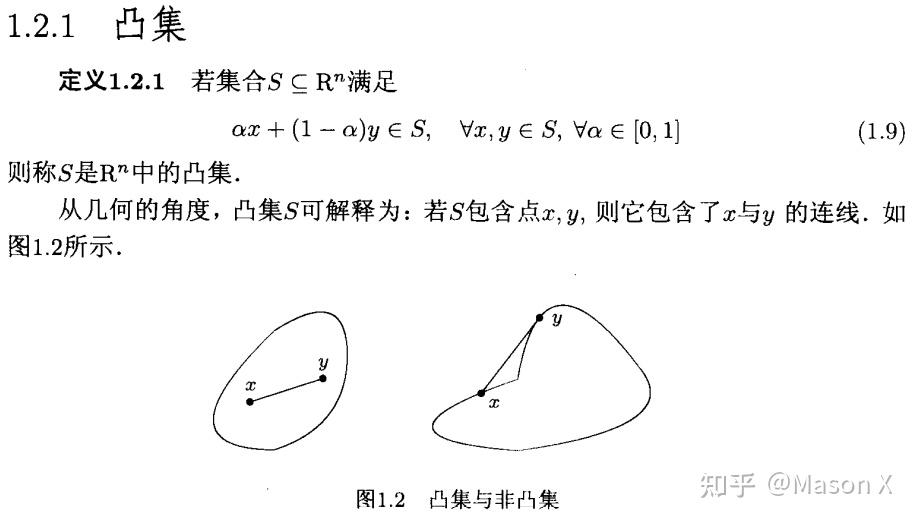 1.2.1 凸集
定义1.2.1 若集合S ⊆ Rⁿ满足
αx + (1 − α)y ∈ S, ∀x, y ∈ S, ∀α ∈ [0, 1] (1.9)
则称S是Rⁿ中的凸集.
从几何的角度, 凸集S可解释为: 若S包含点x, y, 则它包含了x与y 的连线. 如
图1.2所示.
x y
x y
图1.2 凸集与非凸集
知乎 @Mason X